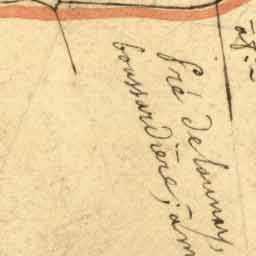 pré de launay,
boussardière, am